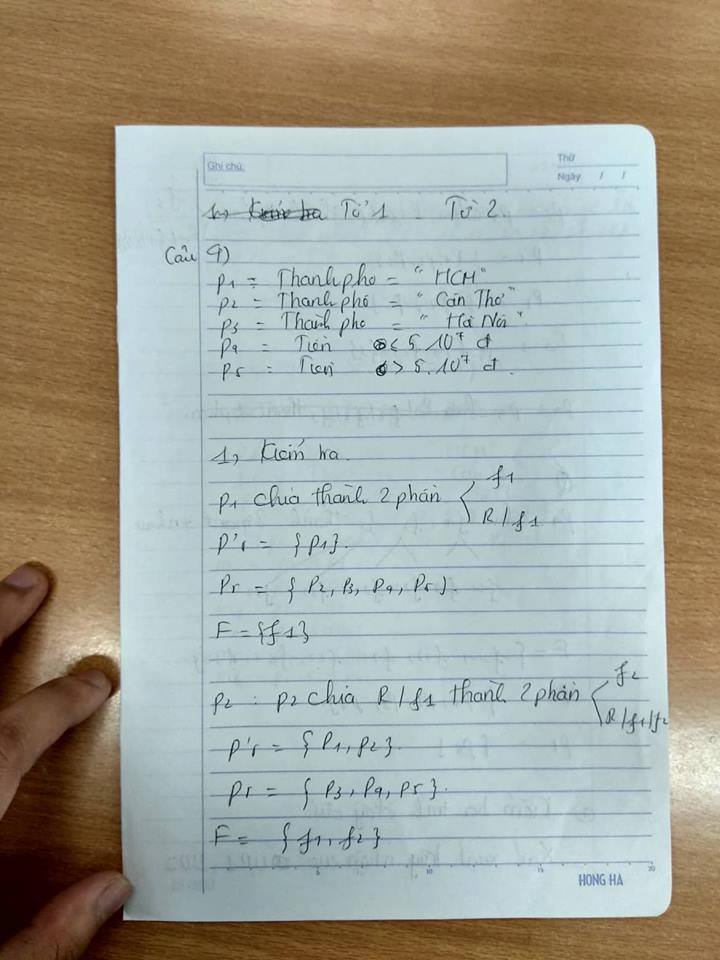 Ghi chú:
Thứ
Ngày / /
1, Kiểm tra Từ 1 - Từ 2
Câu 9)
P1 = Thanh pho = "HCM"
P2 = Thanh phố = "Cần Thơ"
P3 = Thành pho = "Hà Nội"
P4 = Tiền ≤ 5.10⁷ đ
P5 = Tien > 5.10⁷ đ.
1, Kiểm tra.
P1 chia thành 2 phần { f1
R / f1
P'r = {P1}.
Pr = { P2, P3, P4, P5 }.
F = {f1}
P2 : P2 chia R / f1 thành 2 phần { f2
R / f1 / f2
P'r = { P1, P2 }.
Pr = { P3, P4, P5 }.
F = { f1, f2 }
5 10 15 20
HONG HA